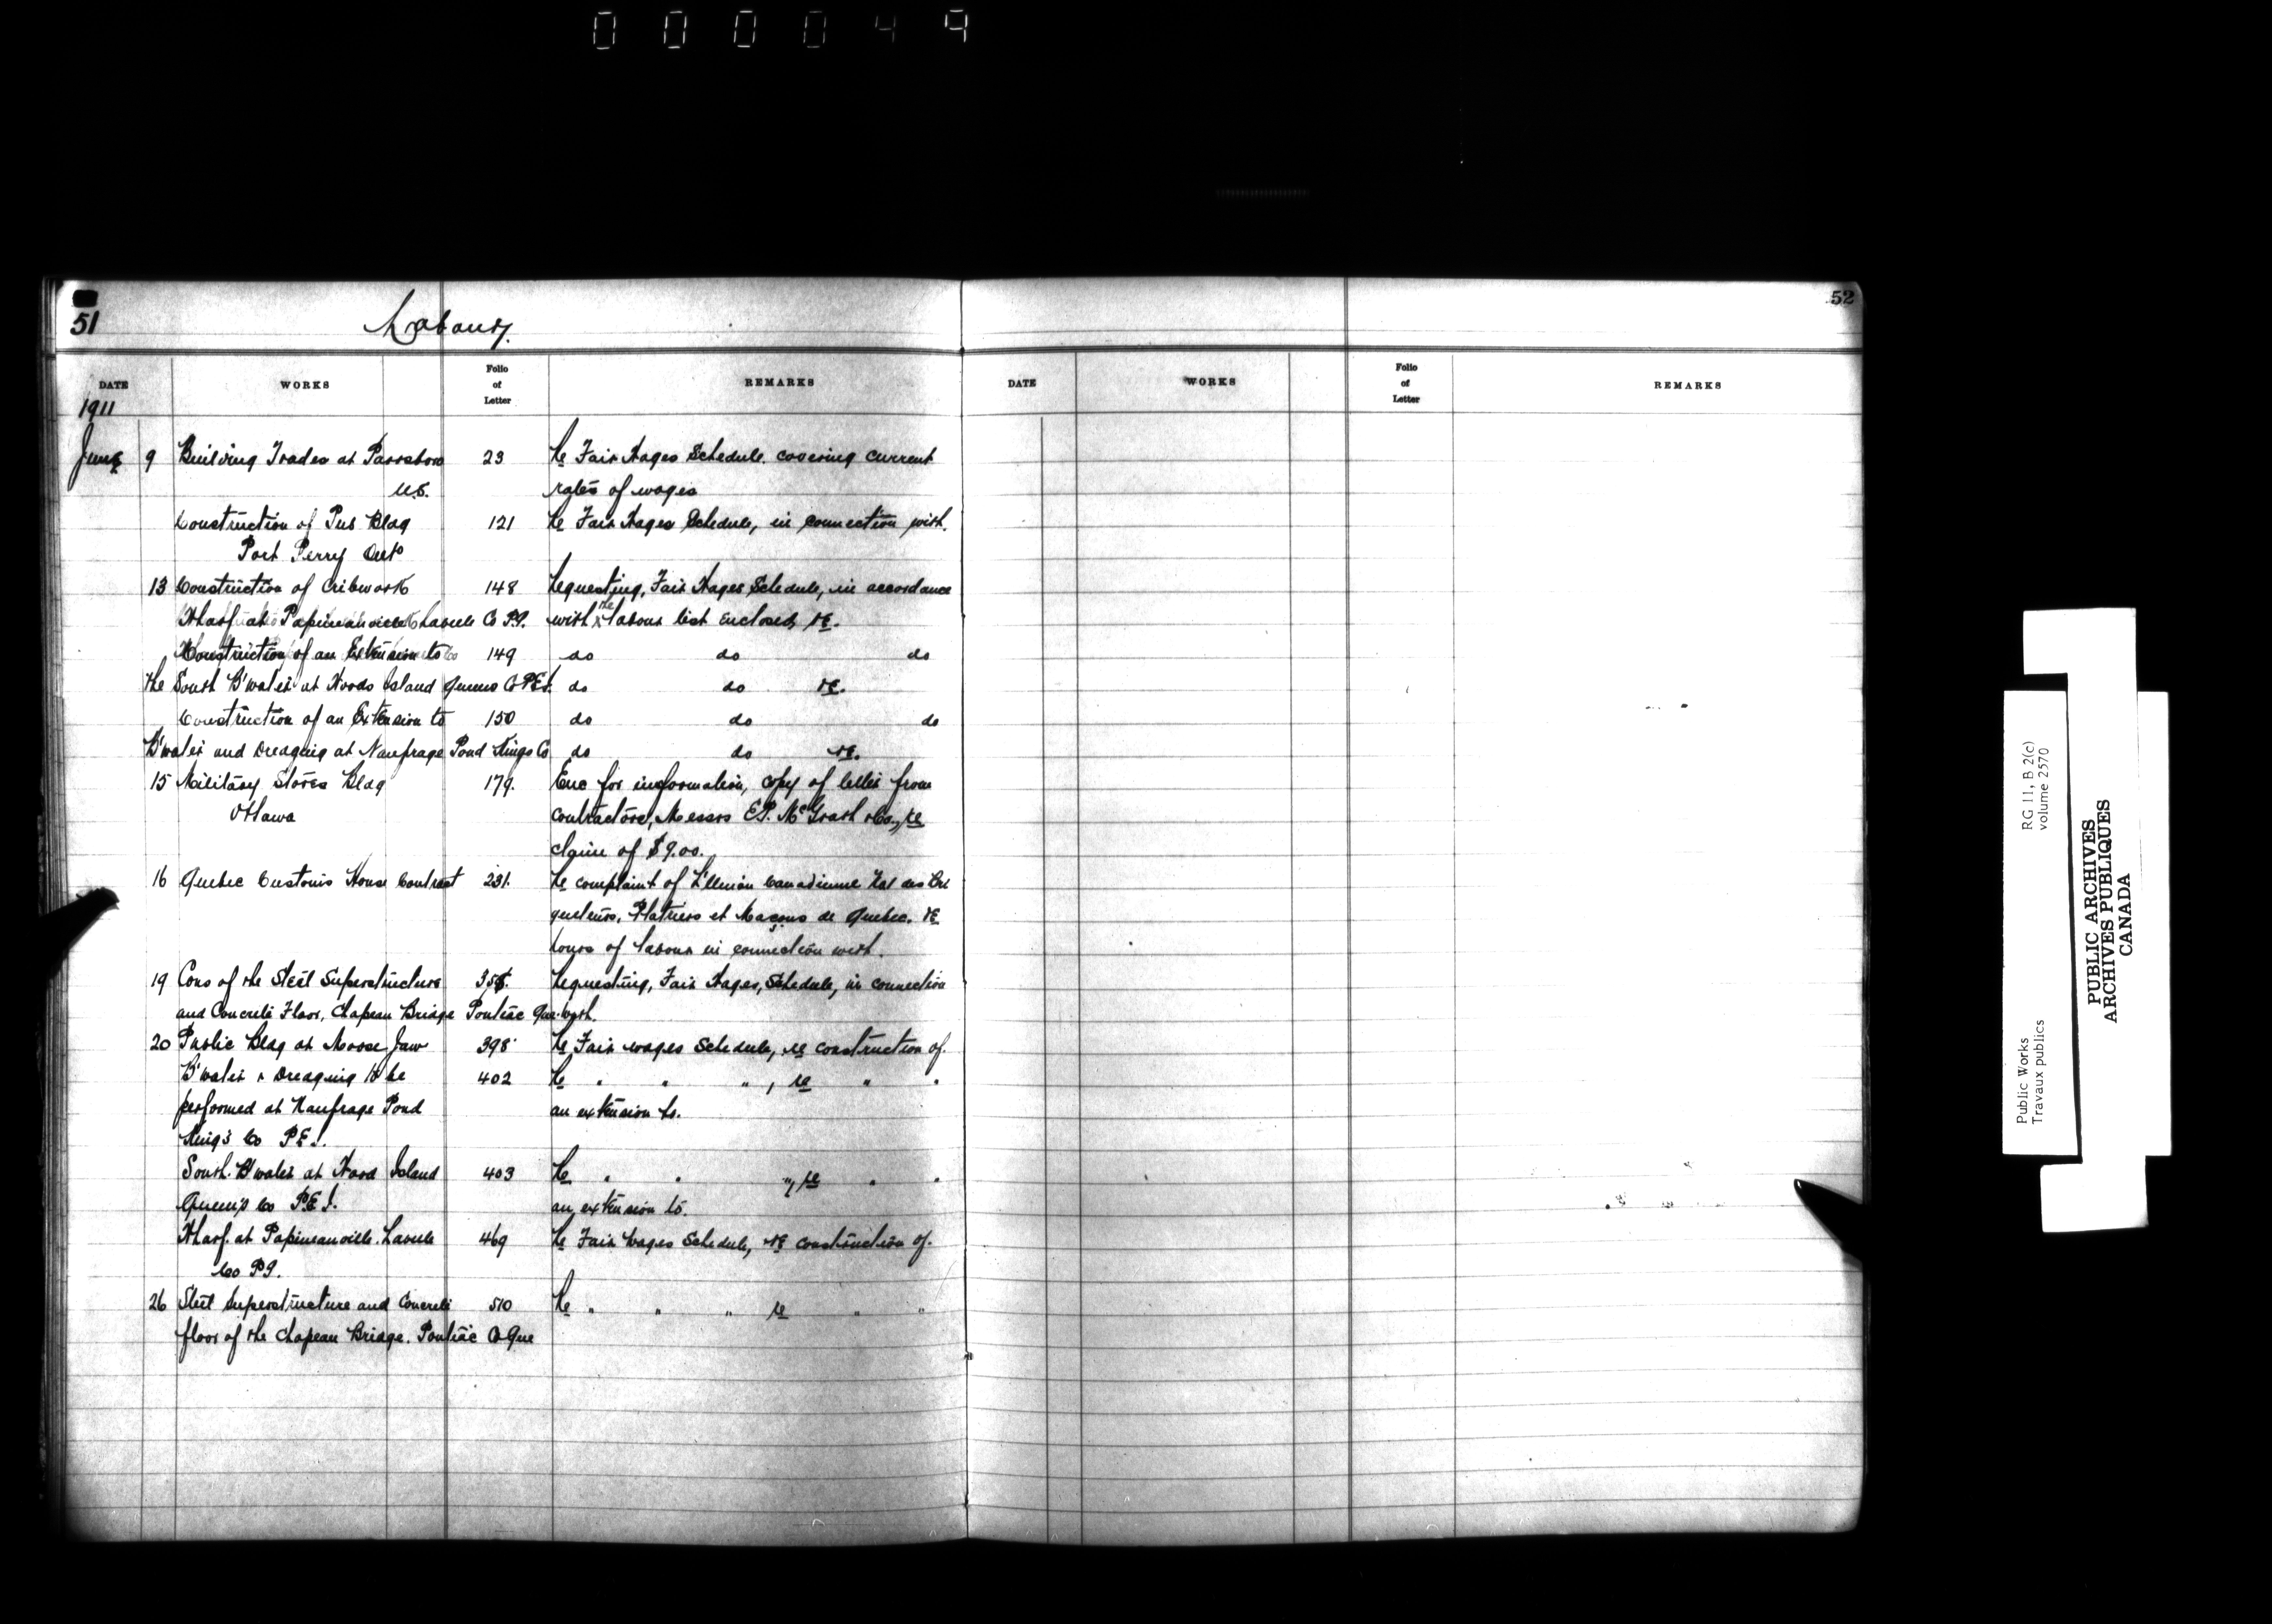 000049
51
Labour.
52
DATE WORKS Folio of Letter REMARKS
DATE WORKS Folio of Letter REMARKS
1911
June 9 Building Trades at Parrsboro 23 Re Fair Wages Schedule. covering current
N.S. rates of wages
Construction of Pub Bldg 121 Re Fair Wages Schedule, in connection with.
Port Perry Ont
13 Construction of Cribwork 148 Requesting, Fair Wages Schedule, in accordance
Wharf at Papineauville Labelle Co P.Q. with the labour list enclosed, re.
Construction of an Extension to 149 do do do
the South B'water at Woods Island Queens Co P.E.I. do do re.
Construction of an Extension to 150 do do do
B'water and Dredging at Naufrage Pond Kings Co do do re.
15 Military Stores Bldg 179. Enc for information, copy of letter from
Ottawa contractors, Messrs E.P. McGrath & Co., re
claim of $9.00.
16 Quebec Customs House Contract 231. Re complaint of L'Union Canadienne Nat des Bri
queleurs, Platriers et Maçons de Quebec. re
hours of labour in connection with.
19 Cons of the Steel Superstructure 356. Requesting, Fair Wages, Schedule, in connection
and Concrete Floor, Chapeau Bridge Pontiac Que. with.
20 Public Bldg at Moose Jaw 398 Re Fair wages Schedule, re construction of.
B'water & Dredging to be 402 Re " " ", re " "
performed at Naufrage Pond an extension to.
King's Co P.E.I.
South. B'water at Wood Island 403 Re " " ", re " "
Queen's Co P.E.I. an extension to.
Wharf. at Papineauville. Labelle 469 Re Fair Wages Schedule, re construction of.
Co P.Q.
26 Steel Superstructure and Concrete 510 Re " " " re " "
floor of the Chapeau Bridge. Pontiac Co Que
Public Works RG 11, B 2(c)
Travaux publics volume 2570
PUBLIC ARCHIVES
ARCHIVES PUBLIQUES
CANADA